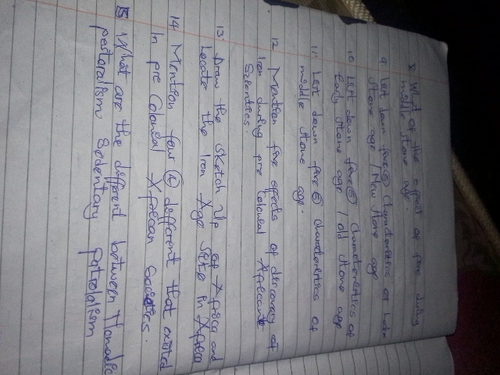 8 What of the effect of fire during
middle stone age
9 List down five (5) characteristics of Late
stone age / New stone age
10 List down five (5) characteristics of
Early stone age / old stone age
11 List down five (5) characteristics of
middle stone age.
12 Mention five effects of discovery of
Iron during pre colonial African
Societies
13 Draw the sketch Map of Africa and
Locate the Iron Age Site in Africa
14 Mention four (4) different that existed
In pre Colonial African Societies.
15 What are the different between Nomadic
pastoralism Sedentary